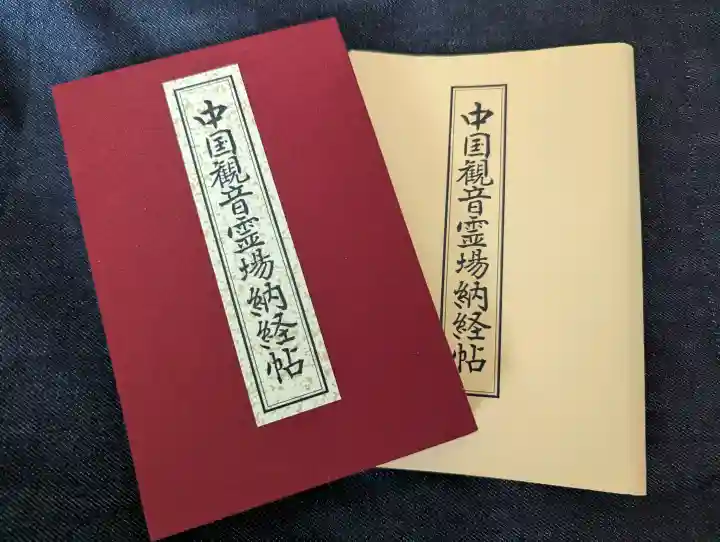 中国観音霊場納経帖
中国観音霊場納経帖